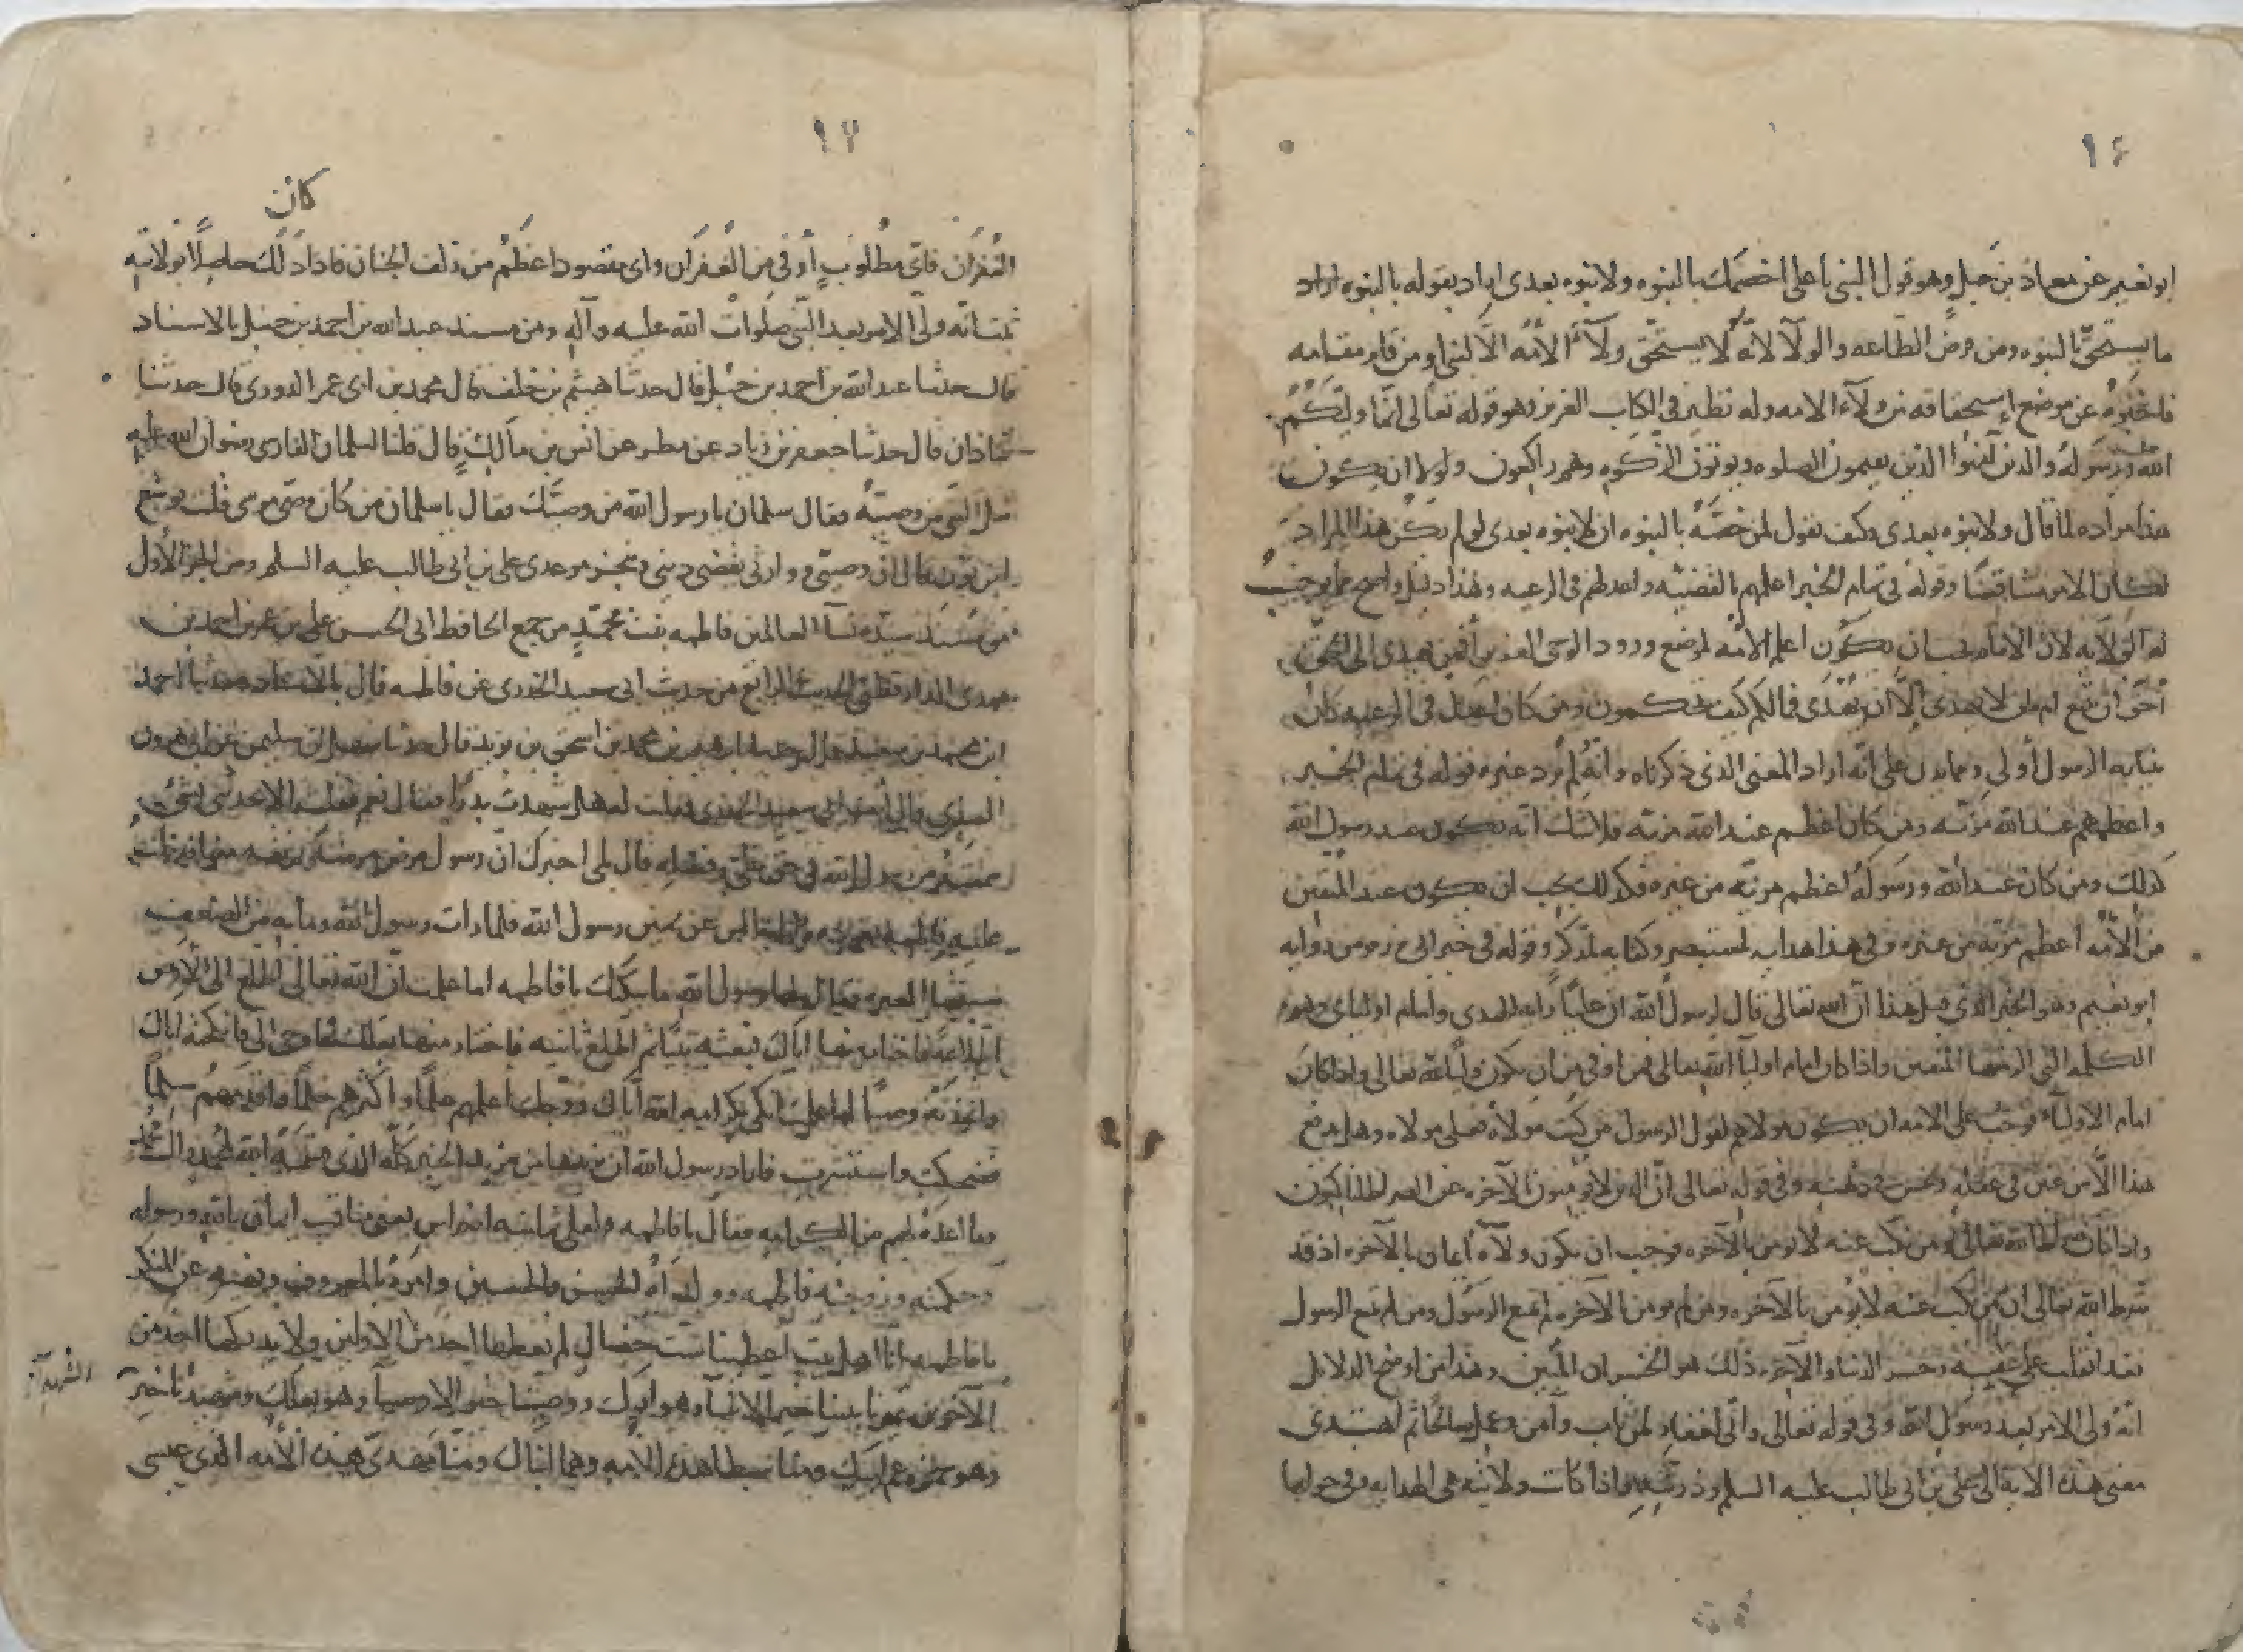 ١٦
ابو نعيم عن معاذ بن جبل وهو قول النبى يا على اخصمك بالنبوه ولا نبوه بعدى اراد بقوله بالنبوه اراد
ما يستحق بالنبوه ومن فرض الطاعه والولآ لانه لا يستحق ولآء الامه الا النبى او من قام مقامه
عن موضع استحقاقه من ولآء الامه وله نظير فى الكتاب العزيز وهو قوله تعالى انما وليكم
الله ورسوله والذين آمنوا الذين يقيمون الصلوه ويوتون الزكوه وهم راكعون ولولا ان يكون
هذا مراده لما قال ولا نبوه بعدى وكيف يقول لمن خصه بالنبوه ان لا نبوه بعدى لو لم يكن هذا المراد
لكان الامر متناقضا وقوله فى تمام الخبر اعلمهم بالقضيه واعدلهم فى الرعيه وهذا دليل واضح مما يوجب
له الولايه لان الامام يجب ان يكون اعلم الامه لموضع ورود الوحى العزيز أفمن يهدى الى الحق
أحق أن يتبع امن لا يهدى إلا أن يهدى فما لكم كيف تحكمون ومن كان اعدل فى الرعيه كان
بنيابه الرسول أولى ومما يدل على انه اراد المعنى الذى ذكرناه وانه لم يرد غيره قوله فى تمام الخبر
واعظمهم عند الله مزيه ومن كان اعظم عند الله مزيه فلا شك انه يكون عند رسول الله
كذلك ومن كان عند الله ورسوله اعظم مزيه من غيره فكذلك يجب ان يكون عند المتقين
من الامه اعظم مزيه من غيره وفى هذا هدايه لمستبصر وكفايه لمتذكر وقوله فى خبر ابى برزه من روايه
ابو نعيم وهى الخبر الذى قبل هذا ان الله تعالى قال لرسول الله ان عليا رايه الهدى وامام اوليائى وهو
الكلمه التى الزمتها المتقين واذا كان امام اوليآ الله تعالى فمن اوفى من ان يكون وليا لله تعالى واذا كان
امام الاوليآء وجب على الامه ان يكون مولاهم لقول الرسول من كنت مولاه فعلى مولاه وهل يدفع
هذا الا من غبن فى عقله وبخس فى دينه وفى قوله تعالى ان الذين لا يؤمنون بالآخره عن الصراط لناكبون
واذا كان الله تعالى ومن نكب عنه لا يومن بالآخره فوجب ان يكون ولآه أيمان بالآخره اذ قد
شرط الله تعالى ان من نكب عنه لا يؤمن بالآخره ومن لم يومن بالآخره لم يتبع الرسول ومن لم يتبع الرسول
فقد انقلب على عقبيه وخسر الدنيا والآخره ذلك هو الخسران المبين وهذا من اوضح الدلائل
انه ولى الامر بعد رسول الله وفى قوله تعالى وانى لغفار لمن تاب وآمن وعمل صالحا ثم اهتدى
معنى هذه الايه الى على بن ابى طالب عليه السلم وذريته واذا كانت ولايته هى الهدايه وفى حولها
١٧
كان
الغفران فاى مطلوب أوفى من الغفران واى مقصود اعظم من زلف الجنان فاذا ذلك حاصلا بولايته
ثبت انه ولى الامر بعد النبى صلوات الله عليه وآله ومن مسند عبد الله بن احمد بن حنبل بالاسناد
قال حدثنا عبد الله بن احمد بن حنبل قال حدثنا هيثم بن خلف قال محمد بن ابى عمر الدورى قال حدثنا
شاذان قال حدثنا جعفر بن زياد عن مطر عن انس بن مالك قال قلنا لسلمان الفارسى رضوان الله عليه
سل النبى من وصيه فقال سلمان يا رسول الله من وصيك فقال يا سلمان من كان وصى موسى قلت يوشع
ابن نون قال ان وصيى ووارثى يقضى دينى وينجز موعدى على بن ابى طالب عليه السلم ومن الجز الأول
من مسند سيده نسآ العالمين فاطمه بنت محمد من جمع الحافظ ابى الحسن على بن عمر بن احمد بن
مهدى الدارقطنى الحديث الرابع من حديث ابى سعيد الخدرى عن فاطمه قال بالاسناد حدثنا احمد
ابن محمد بن سعيد قال حدثنا ابراهيم بن محمد بن اسحق بن يزيد قال حدثنا سهل بن سليمن عن ابى هرون
العبدى قال أتيت ابى سعيد الخدرى فقلت له هل شهدت بدرا فقال نعم فقلت الا تحدثنى بشئ
سمعته من رسول الله فى حق على وفضله قال بلى اخبرك ان رسول مرض مرضه
عليه فاطمه عن يمين رسول الله فلما رات رسول الله وما به من الضعف
العبره فقال لها رسول الله ما يبكيك يا فاطمه اما علمت ان الله تعالى اطلع الى الارض
اطلاعه فاختار منها اباك فبعثه نبيا ثم اطلع ثانيه فاختار منها بعلك فاوحى الى فانكحته اياك
واتخذته وصيا اما علمت انك بكرامه الله اياك زوجك اعلمهم علما واكثرهم حلما واقدمهم سلما
فضحكت واستبشرت فاراد رسول الله ان يزيدها من مزيد الخير كله الذى قسمه الله لمحمد وآل محمد
وما اعده لهم من الكرامه فقال يا فاطمه ولعلى ثمانيه اضراس يعنى مناقب ايمان بالله ورسوله
وحكمته وزوجته فاطمه وولداه الحسن والحسين وامره بالمعروف ونهيه عن المنكر
يا فاطمه انا اهل بيت اعطينا ست خصال لم يعطها احد من الاولين ولا يدركها احد من
الآخرين غيرنا نبينا خير الانبيا وهو ابوك ووصينا خير الاوصيآ وهو بعلك وشهيدنا خير
الشهدآ
وهو حمزه عم ابيك ومنا سبطا هذه الامه وهما ابناك ومنا مهدى هذه الأمه الذى عيسى